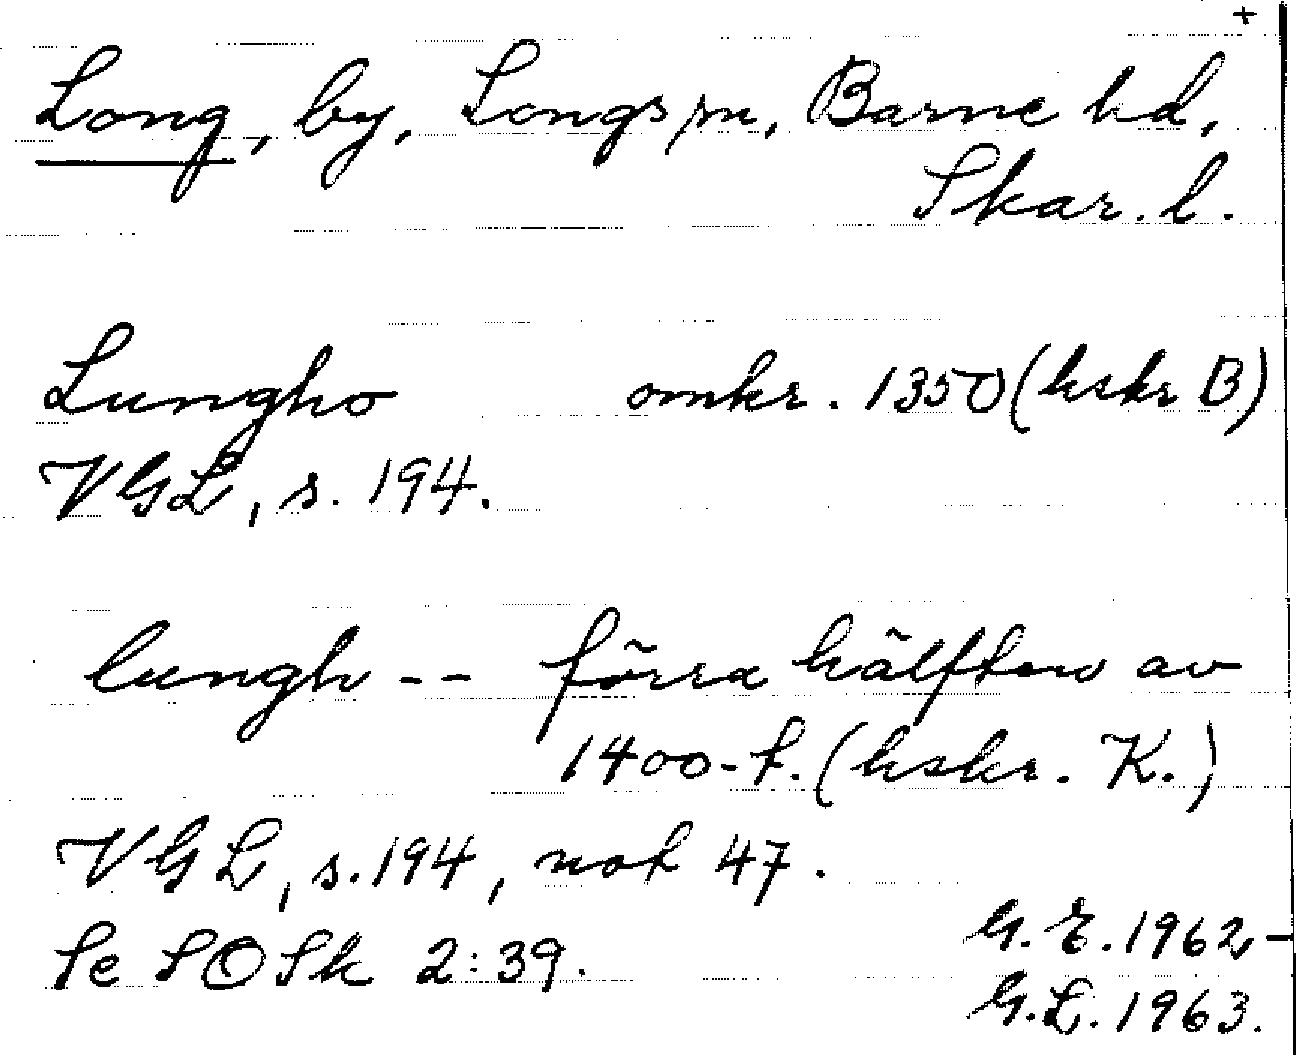 +
Long, by, Longs sn, Barne hd,
Skar. l.
Lungho omkr. 1350 (hskr B)
VGL, s. 194.
lungh -- förra hälften av
1400-t. (hskr. K.)
VGL, s. 194, not 47.
Se SOSk 2:39.
G. E. 1962 -
G. L. 1963.